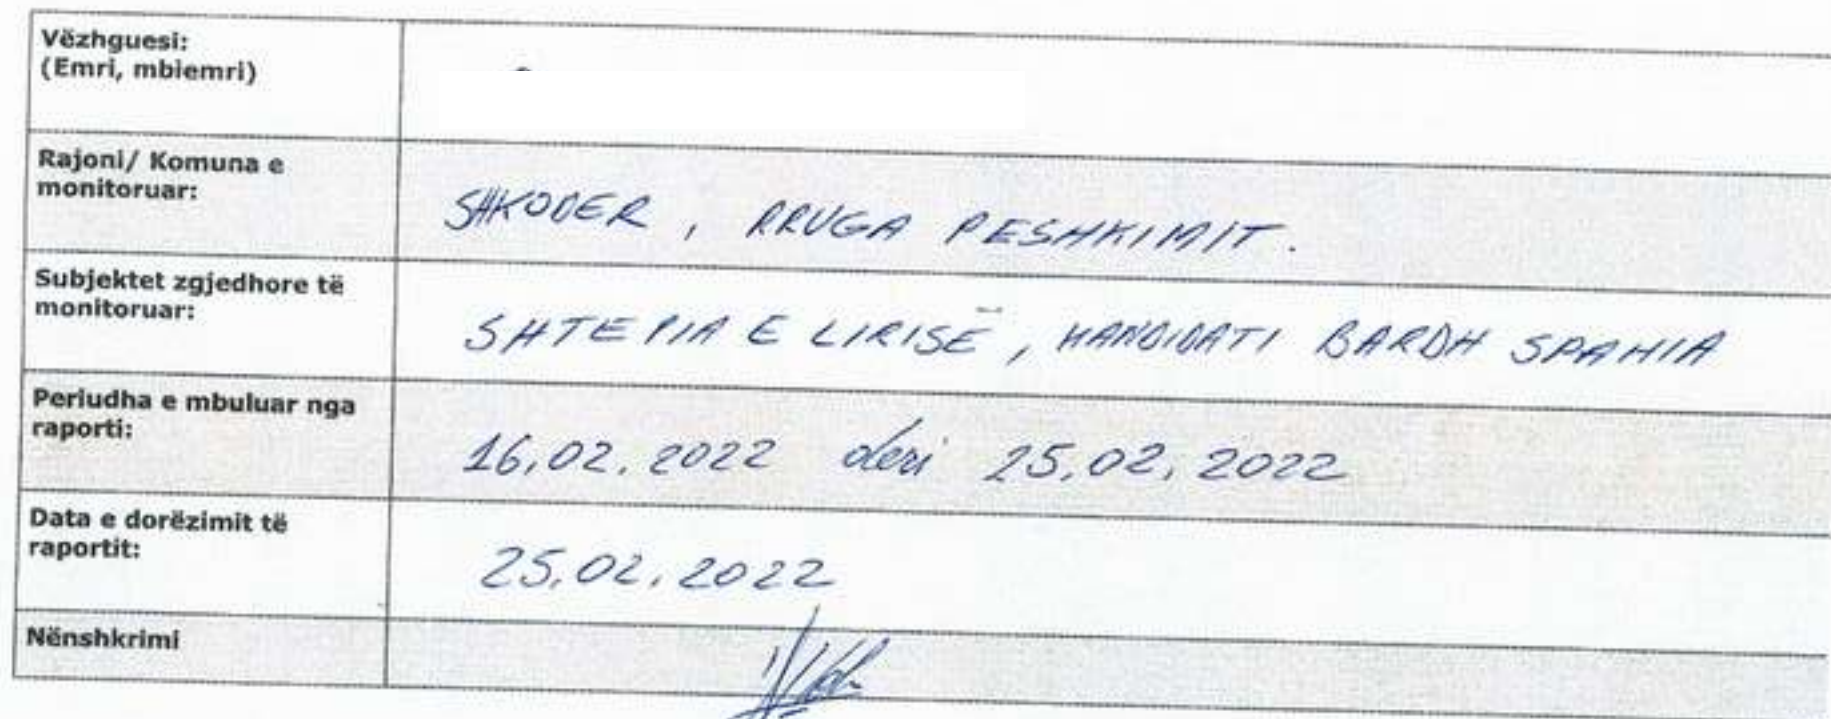 Vëzhguesi:
(Emri, mbiemri)
Rajoni/ Komuna e
monitoruar:
SHKODER, RRUGA PESHKIMIT.
Subjektet zgjedhore të
monitoruar:
SHTEPIA E LIRISË, KANDIDATI BARDH SPAHIA
Periudha e mbuluar nga
raporti:
16.02.2022 deri 25.02.2022
Data e dorëzimit të
raportit:
25.02.2022
Nënshkrimi